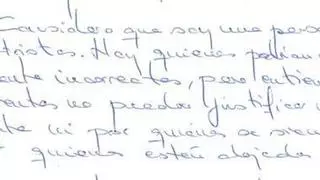 Considero que soy una pers
tristas. Hay quienes podrían
incorrectas, pero entien
no puedas justifica
ni por quienes se sien
quienes estén alejados